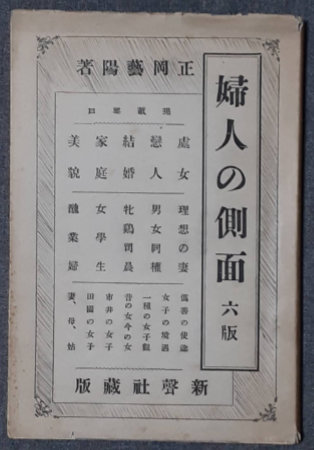 婦人の側面 六版
正岡藝陽著
處女
戀人
結婚
家庭
美貌
理想の妻
男女同權
牝鷄司晨
女學生
醜業婦
僞善の使徒
女子の境遇
一種の女子觀
昔の女今の女
市井の女子
田園の女子
妻、母、姑
新聲社藏版